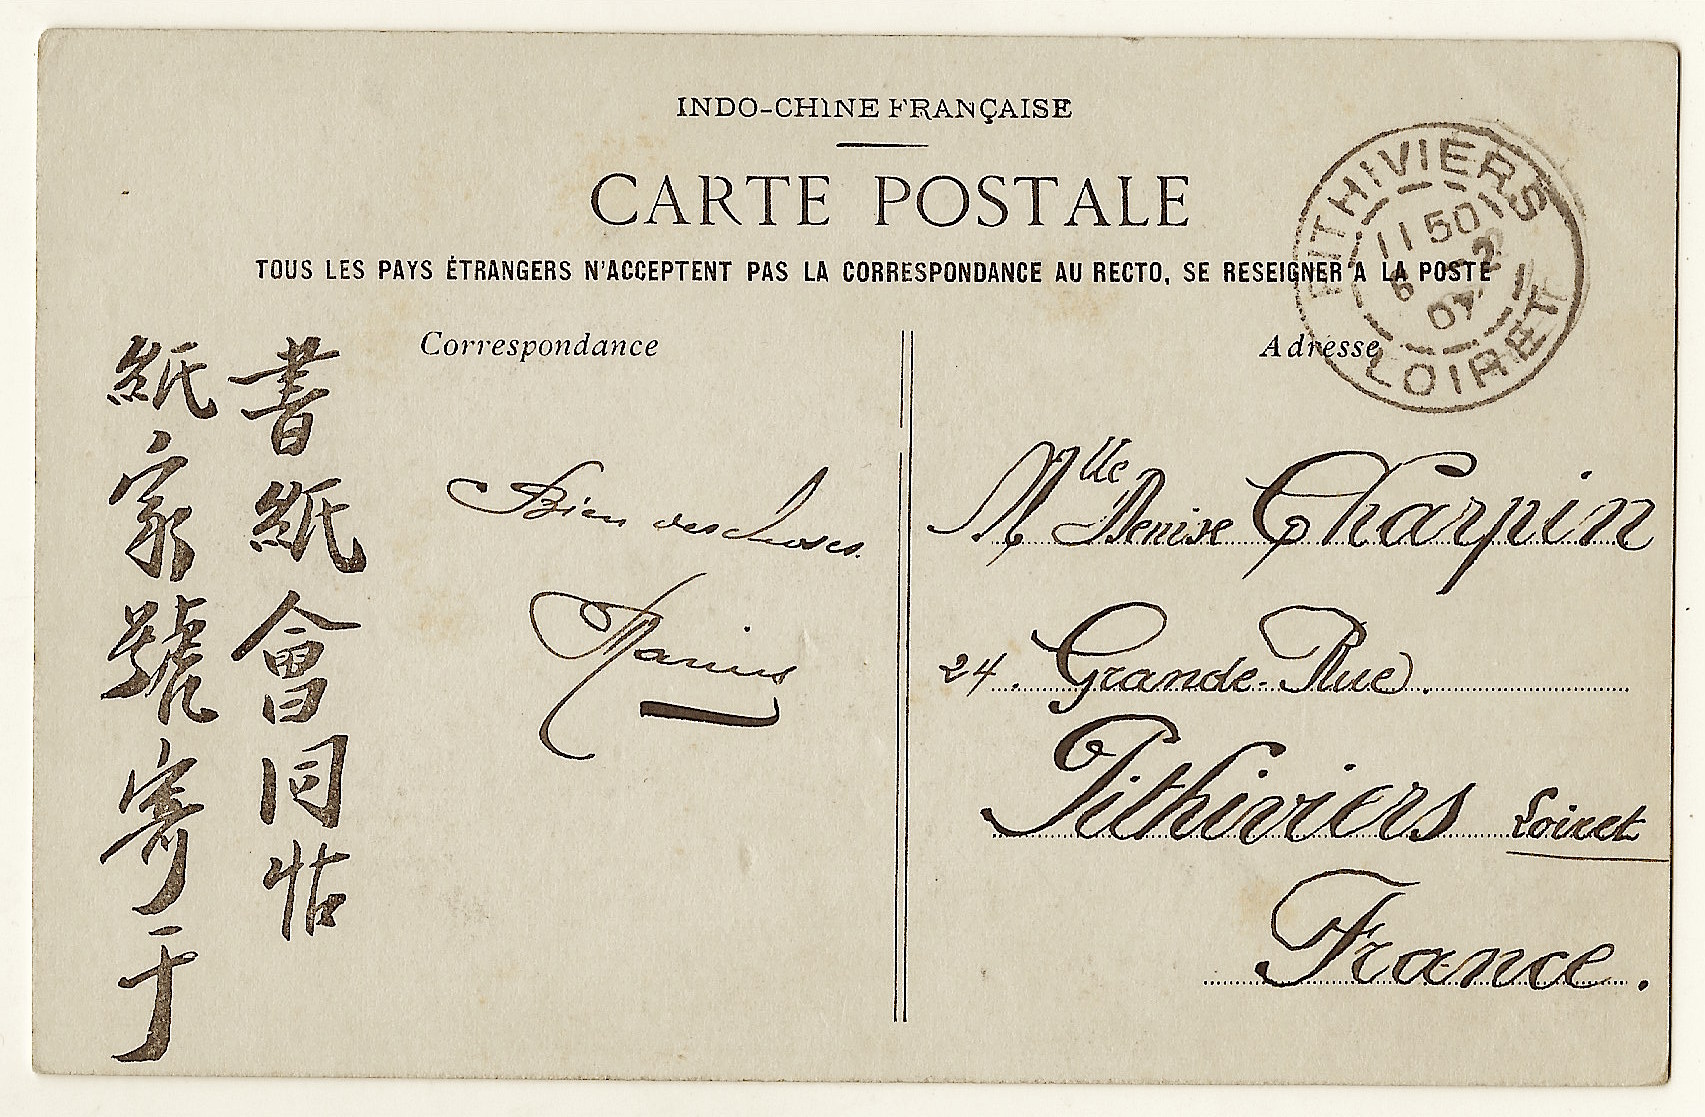 INDO-CHINE FRANÇAISE
CARTE POSTALE
TOUS LES PAYS ÉTRANGERS N'ACCEPTENT PAS LA CORRESPONDANCE AU RECTO, SE RESEIGNER A LA POSTE
Correspondance
Adresse
PITHIVIERS
11 50
6 2
07
LOIRET
書紙會同帖
紙家號寄于
Bien des choses.
Marius
Mlle Denise Charpin
24. Grande-Rue.
Pithiviers Loiret
France.